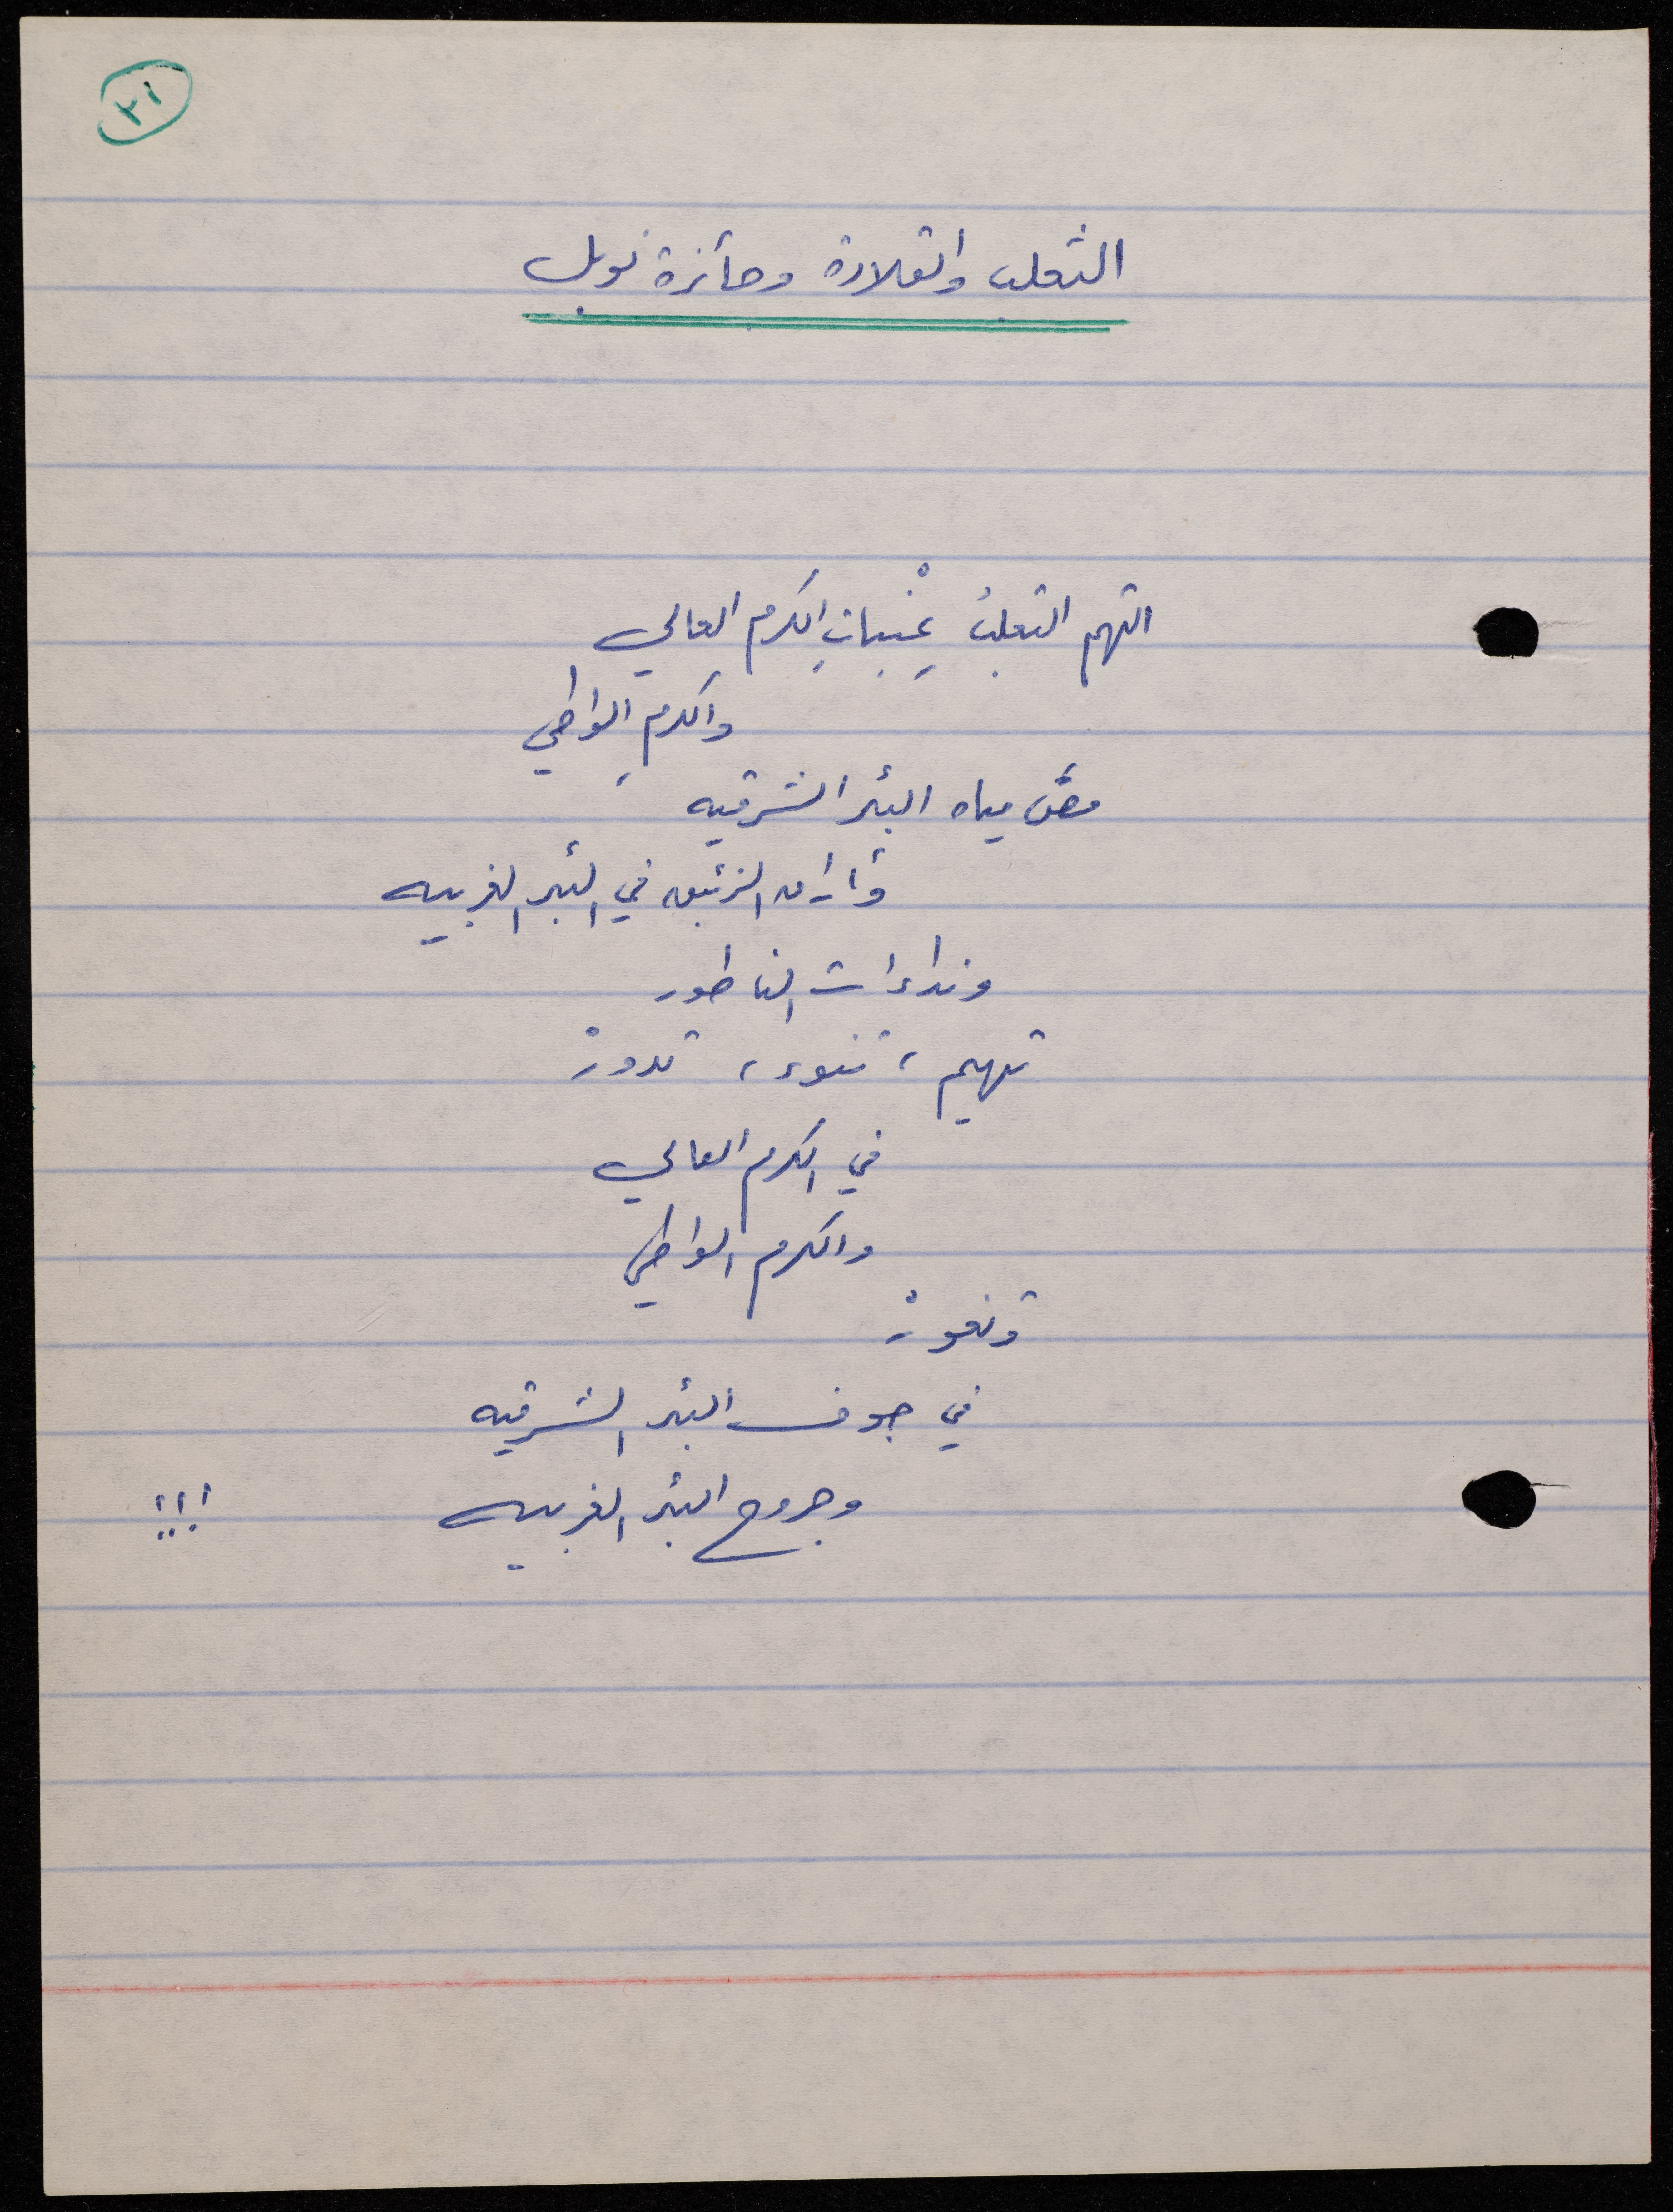 ٢١
الثعلب والقلادة وجائزة نوبل
التهم الثعلبُ عِنْبات الكرمِ العالي
والكرمِ الواطي
مصَّ مياه البئر الشرقيه
وأراق الزئبق في البئر الغربيه
ونداءات الناطور
تهيم، تنوء، تدورْ
في الكرم العالي
والكرم الواطي
وتغورْ
في جوف البئر الشرقيه
وجروح البئر الغربيه !!!